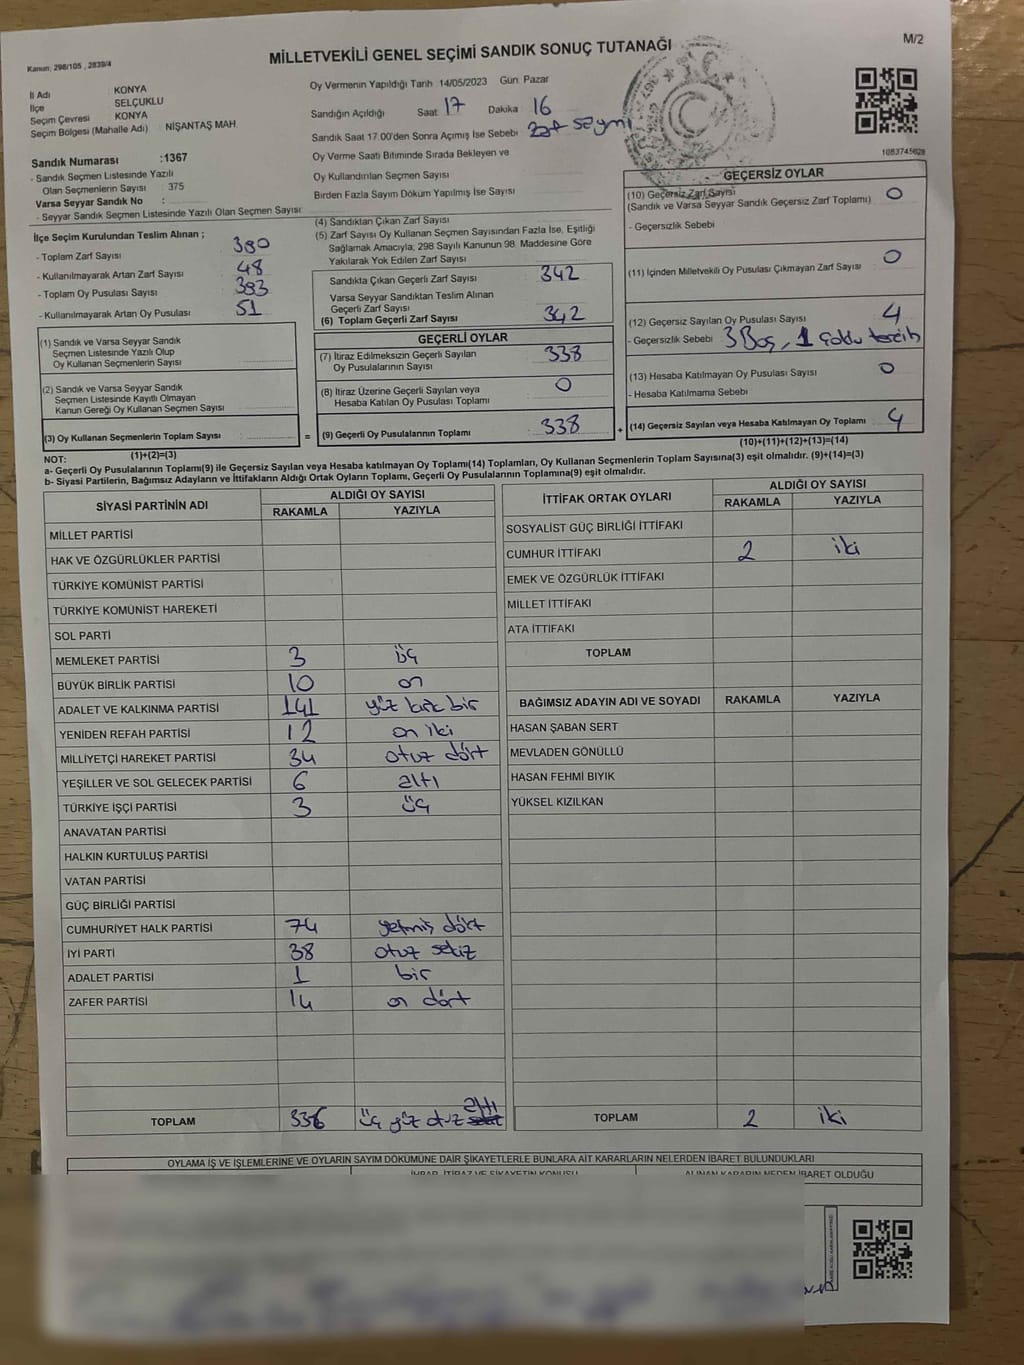 Kanun, 298/105 , 2839/4
MİLLETVEKİLİ GENEL SEÇİMİ SANDIK SONUÇ TUTANAĞI
M/2
İl Adı : KONYA
İlçe : SELÇUKLU
Seçim Çevresi : KONYA
Seçim Bölgesi (Mahalle Adı) : NİŞANTAŞ MAH.
Sandık Numarası :1367
- Sandık Seçmen Listesinde Yazılı
Olan Seçmenlerin Sayısı : 375
Varsa Seyyar Sandık No :
- Seyyar Sandık Seçmen Listesinde Yazılı Olan Seçmen Sayısı:
Oy Vermenin Yapıldığı Tarih 14/05/2023 Gün Pazar
Sandığın Açıldığı Saat 17 Dakika 16
Sandık Saat 17.00'den Sonra Açımış İse Sebebi zarf sayımı
Oy Verme Saati Bitiminde Sırada Bekleyen ve
Oy Kullandırılan Seçmen Sayısı
Birden Fazla Sayım Döküm Yapılmış İse Sayısı
1083745628
İlçe Seçim Kurulundan Teslim Alınan ;
- Toplam Zarf Sayısı 390
- Kullanılmayarak Artan Zarf Sayısı 48
- Toplam Oy Pusulası Sayısı 393
- Kullanılmayarak Artan Oy Pusulası 51
(1) Sandık ve Varsa Seyyar Sandık
Seçmen Listesinde Yazılı Olup
Oy Kullanan Seçmenlerin Sayısı
(2) Sandık ve Varsa Seyyar Sandık
Seçmen Listesinde Kayıtlı Olmayan
Kanun Gereği Oy Kullanan Seçmen Sayısı
(3) Oy Kullanan Seçmenlerin Toplam Sayısı =
(1)+(2)=(3)
(4) Sandıktan Çıkan Zarf Sayısı
(5) Zarf Sayısı Oy Kullanan Seçmen Sayısından Fazla İse, Eşitliği
Sağlamak Amacıyla; 298 Sayılı Kanunun 98. Maddesine Göre
Yakılarak Yok Edilen Zarf Sayısı
Sandıkta Çıkan Geçerli Zarf Sayısı 342
Varsa Seyyar Sandıktan Teslim Alınan
Geçerli Zarf Sayısı
(6) Toplam Geçerli Zarf Sayısı 342
GEÇERLİ OYLAR
(7) İtiraz Edilmeksizin Geçerli Sayılan
Oy Pusulalarının Sayısı 338
(8) İtiraz Üzerine Geçerli Sayılan veya
Hesaba Katılan Oy Pusulası Toplamı 0
(9) Geçerli Oy Pusulalarının Toplamı 338 +
GEÇERSİZ OYLAR
(10) Geçersiz Zarf Sayısı 0
(Sandık ve Varsa Seyyar Sandık Geçersiz Zarf Toplamı)
- Geçersizlik Sebebi
(11) İçinden Milletvekili Oy Pusulası Çıkmayan Zarf Sayısı 0
(12) Geçersiz Sayılan Oy Pusulası Sayısı 4
- Geçersizlik Sebebi 3 Boş, 1 çoklu tercih
(13) Hesaba Katılmayan Oy Pusulası Sayısı 0
- Hesaba Katılmama Sebebi
(14) Geçersiz Sayılan veya Hesaba Katılmayan Oy Toplamı 4
(10)+(11)+(12)+(13)=(14)
NOT:
a- Geçerli Oy Pusulalarının Toplamı(9) ile Geçersiz Sayılan veya Hesaba katılmayan Oy Toplamı(14) Toplamları, Oy Kullanan Seçmenlerin Toplam Sayısına(3) eşit olmalıdır. (9)+(14)=(3)
b- Siyasi Partilerin, Bağımsız Adayların ve İttifakların Aldığı Ortak Oyların Toplamı, Geçerli Oy Pusulalarının Toplamına(9) eşit olmalıdır.
SİYASİ PARTİNİN ADI ALDIĞI OY SAYISI
RAKAMLA YAZIYLA
MİLLET PARTİSİ
HAK VE ÖZGÜRLÜKLER PARTİSİ
TÜRKİYE KOMÜNİST PARTİSİ
TÜRKİYE KOMÜNİST HAREKETİ
SOL PARTİ
MEMLEKET PARTİSİ 3 üç
BÜYÜK BİRLİK PARTİSİ 10 on
ADALET VE KALKINMA PARTİSİ 141 yüz kırk bir
YENİDEN REFAH PARTİSİ 12 on iki
MİLLİYETÇİ HAREKET PARTİSİ 34 otuz dört
YEŞİLLER VE SOL GELECEK PARTİSİ 6 altı
TÜRKİYE İŞÇİ PARTİSİ 3 üç
ANAVATAN PARTİSİ
HALKIN KURTULUŞ PARTİSİ
VATAN PARTİSİ
GÜÇ BİRLİĞİ PARTİSİ
CUMHURİYET HALK PARTİSİ 74 yetmiş dört
İYİ PARTİ 38 otuz sekiz
ADALET PARTİSİ 1 bir
ZAFER PARTİSİ 14 on dört
TOPLAM 336 üç yüz otuz altı
İTTİFAK ORTAK OYLARI ALDIĞI OY SAYISI
RAKAMLA YAZIYLA
SOSYALİST GÜÇ BİRLİĞİ İTTİFAKI
CUMHUR İTTİFAKI 2 iki
EMEK VE ÖZGÜRLÜK İTTİFAKI
MİLLET İTTİFAKI
ATA İTTİFAKI
TOPLAM
BAĞIMSIZ ADAYIN ADI VE SOYADI RAKAMLA YAZIYLA
HASAN ŞABAN SERT
MEVLADEN GÖNÜLLÜ
HASAN FEHMİ BIYIK
YÜKSEL KIZILKAN
TOPLAM 2 iki
OYLAMA İŞ VE İŞLEMLERİNE VE OYLARIN SAYIM DÖKÜMÜNE DAİR ŞİKAYETLERLE BUNLARA AİT KARARLARIN NELERDEN İBARET BULUNDUKLARI
İHBAR, İTİRAZ VE ŞİKAYETİN KONUSU ALINAN KARARIN NEDEN İBARET OLDUĞU